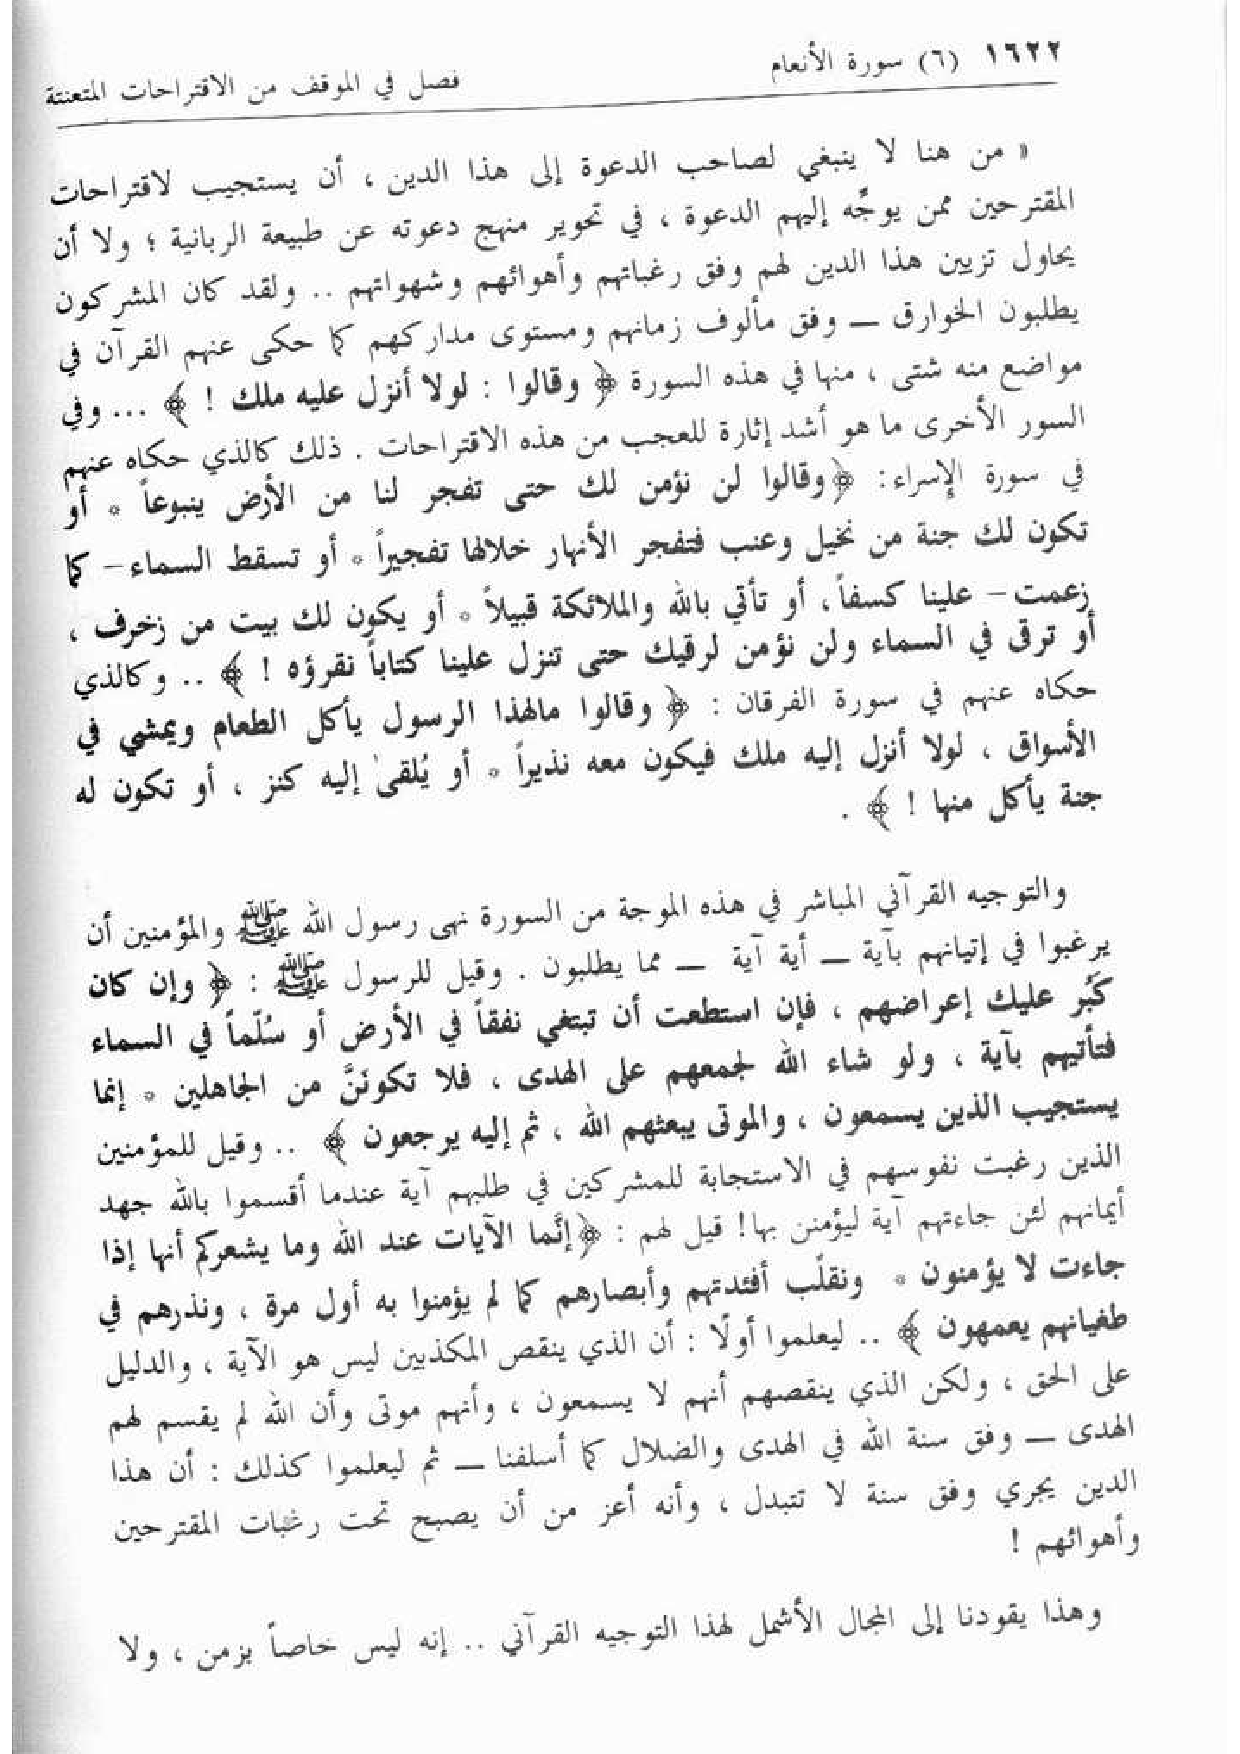 ١٦٢٢ (٦) سورة الأنعام فصل في الموقف من الاقتراحات المتعنتة
« من هنا لا ينبغي لصاحب الدعوة إلى هذا الدين ، أن يستجيب لاقتراحات
المقترحين ممن يوجَّه إليهم الدعوة ، في تحوير منهج دعوته عن طبيعة الربانية ؛ ولا أن
يحاول تزيين هذا الدين لهم وفق رغباتهم وأهوائهم وشهواتهم .. ولقد كان المشركون
يطلبون الخوارق ــ وفق مألوف زمانهم ومستوى مداركهم كما حكى عنهم القرآن في
مواضع منه شتى ، منها في هذه السورة ﴿ وقالوا : لولا أنزل عليه ملك ! ﴾ ... وفي
السور الأخرى ما هو أشد إثارة للعجب من هذه الاقتراحات . ذلك كالذي حكاه عنهم
في سورة الإسراء: ﴿وقالوا لن نؤمن لك حتى تفجر لنا من الأرض ينبوعاً * أو
تكون لك جنة من نخيل وعنب فتفجر الأنهار خلالها تفجيراً * أو تسقط السماء – كما
زعمت – علينا كسفاً، أو تأتي بالله والملائكة قبيلاً * أو يكون لك بيت من زخرف ،
أو ترقى في السماء ولن نؤمن لرقيك حتى تنزل علينا كتاباً نقرؤه ! ﴾ .. وكالذي
حكاه عنهم في سورة الفرقان : ﴿ وقالوا مالهذا الرسول يأكل الطعام ويمشي في
الأسواق ، لولا أنزل إليه ملك فيكون معه نذيراً * أو يُلقىٰ إليه كنز ، أو تكون له
جنة يأكل منها ! ﴾ .
والتوجيه القرآني المباشر في هذه الموجة من السورة نهى رسول الله ﷺ والمؤمنين أن
يرغبوا في إتيانهم بآية ــ أية آية ــ مما يطلبون . وقيل للرسول ﷺ : ﴿ وإن كان
كَبُر عليك إعراضهم ، فإن استطعت أن تبتغي نفقاً في الأرض أو سُلّماً في السماء
فتأتيهم بآية ، ولو شاء الله لجمعهم على الهدى ، فلا تكونَنَّ من الجاهلين * إنما
يستجيب الذين يسمعون ، والموتى يبعثهم الله ، ثم إليه يرجعون ﴾ .. وقيل للمؤمنين
الذين رغبت نفوسهم في الاستجابة للمشركين في طلبهم آية عندما أقسموا بالله جهد
أيمانهم لئن جاءتهم آية ليؤمنن بها! قيل لهم : ﴿إنَّما الآيات عند الله وما يشعركم أنها إذا
جاءت لا يؤمنون * ونقلّب أفئدتهم وأبصارهم كما لم يؤمنوا به أول مرة ، ونذرهم في
طغيانهم يعمهون ﴾ .. ليعلموا أولًا : أن الذي ينقص المكذبين ليس هو الآية ، والدليل
على الحق ، ولكن الذي ينقصهم أنهم لا يسمعون ، وأنهم موتى وأن الله لم يقسم لهم
الهدى ــ وفق سنة الله في الهدى والضلال كما أسلفنا ــ ثم ليعلموا كذلك : أن هذا
الدين يجري وفق سنة لا تتبدل ، وأنه أعز من أن يصبح تحت رغبات المقترحين
وأهوائهم !
وهذا يقودنا إلى المجال الأشمل لهذا التوجيه القرآني .. إنه ليس خاصاً بزمن ، ولا